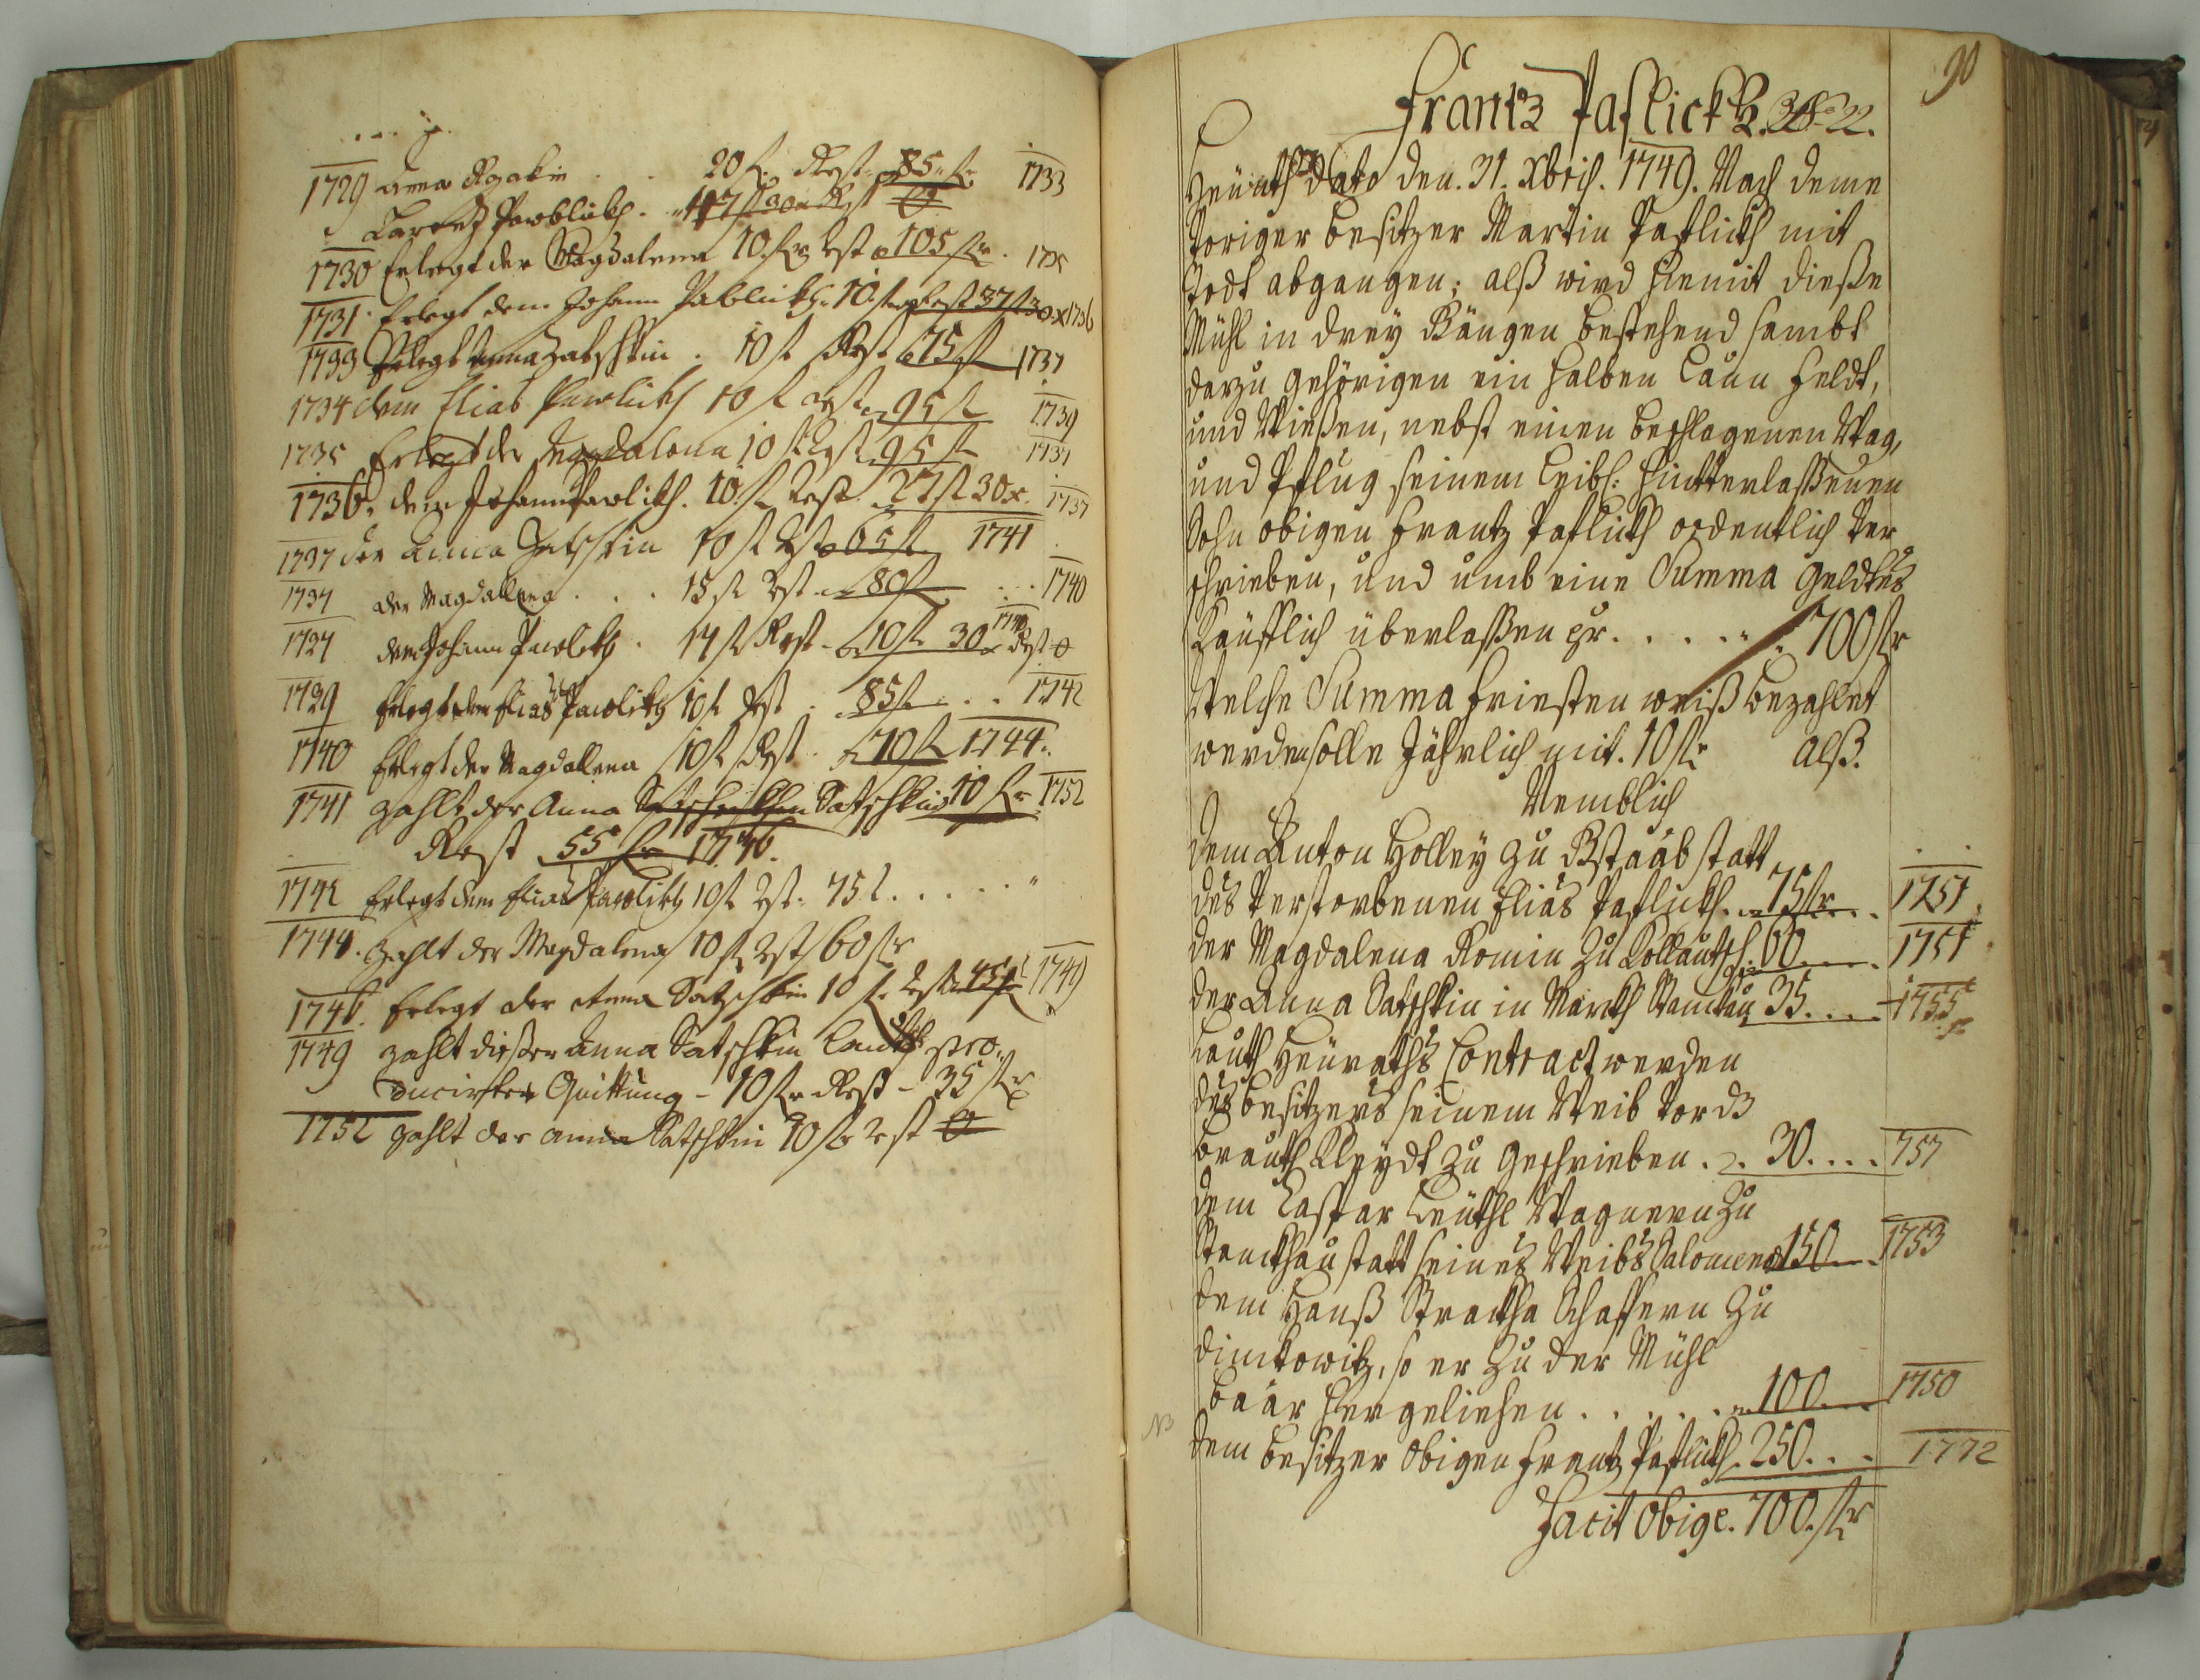 1729 Anna 20 fl. Rest 85 fl. 1733
Pawblickh. 17 fl 30 Rest 0
1730 Erlegt der Magdalena 10 flr Rest 105 flr. 1735
1731 Erlegt dem Johann Pablickh. 10 fl Rest 37 fl 30 x 1736
1733 Erlegt Anna Satschkin. 10 fl Rest 75 fl 1737
1734 dem Elias Pawlickh 10 fl rest 95 fl 1739
1735 Erlegt der Magdalena 10 fl Rest 95 fl 1737
1736. dem Johann Pawlickh. 10. fl Rest. 27 fl 30 x. 1737
1737 der Anna Satschkin 10 fl Rest 65 fl 1741
1737 der Magdallena . . . 15 fl rest. 80 fl . . 1740
1737 dem Johann Pawlickh. 17 fl Rest. 10 fl 30 x 1740 Rest 0
1739 Erlegt dem Elias Pawlickh 10 fl Rest. 85 fl . . 1742
1740 Erlegt der Magdallena 10 fl Rest. 70 fl 1744.
1741 zahlt der Anna Satschkin 10 fr 1752
Rest 55 fr 1746.
1742 Erlegt dem Elias Pawlickh 10 fl Rest. 75 l. . . . . .
1744. zahlt der Magdalena 10 fl rest 60 flr
1746. Erlegt der Anna Satschkin 10 fl. Rest 45 fl 1749
1749 zahlt dießer Anna Satschkin Lauth pro-
ducirter Quittung - 10 flr Rest - 35 flr
1752 zahlt der Anna Satschkin 10 flr rest 0
90
Frantz Paflickh. 22.
Heünth Dato den. 31. Xbris. 1749. Nach deme
Voriger besitzer Martin Paflickh mit
Todt abgangen; alß wird hiemit dieße
Mühl in drey Gängen bestehend sambt
darzu gehörigen ein halben Lann Feldt,
und Wießen, nebst einen beschlagenen Wag,
und Pflug seinem Leibl: hintterlaßenen
Sohn obigen Frantz Paflickh ordentlich Ver
schrieben, und umb eine Summa geldtes
Käufflich überlaßen pr. . . . . . 700 flr
Welche Summa Friesten weiß bezahlet
werden solle Jährlich mit. 10 flr alß.
Nemblich
dem Anton Holley zu Gstaab statt
des Verstorbenen Elias Paflickh. 75 flr . . 1751.
der Magdalena Romin zu Kollautsch. 60 . . . 1751
der Anna Satschkin in Marckh Stanckau 35 . . . . 1755
Lauth Heüraths Contract werden
des besitzers seinem Weib Vor dß
brauth Kleydt zu geschrieben . . 30 . . . . 757
dem Caspar Wagnern zu
Stanckhau statt seines Weibs Salomena 150 . . 1753
dem Hanß Strackha Schaffern zu
dimkowitz, so er zu der Mühl
baar hergeliehen . . . . . . 100 . . 1750
NB
dem besitzer obigen Frantz Paflickh. 250. . . 1772
Facit obige. 700. flr